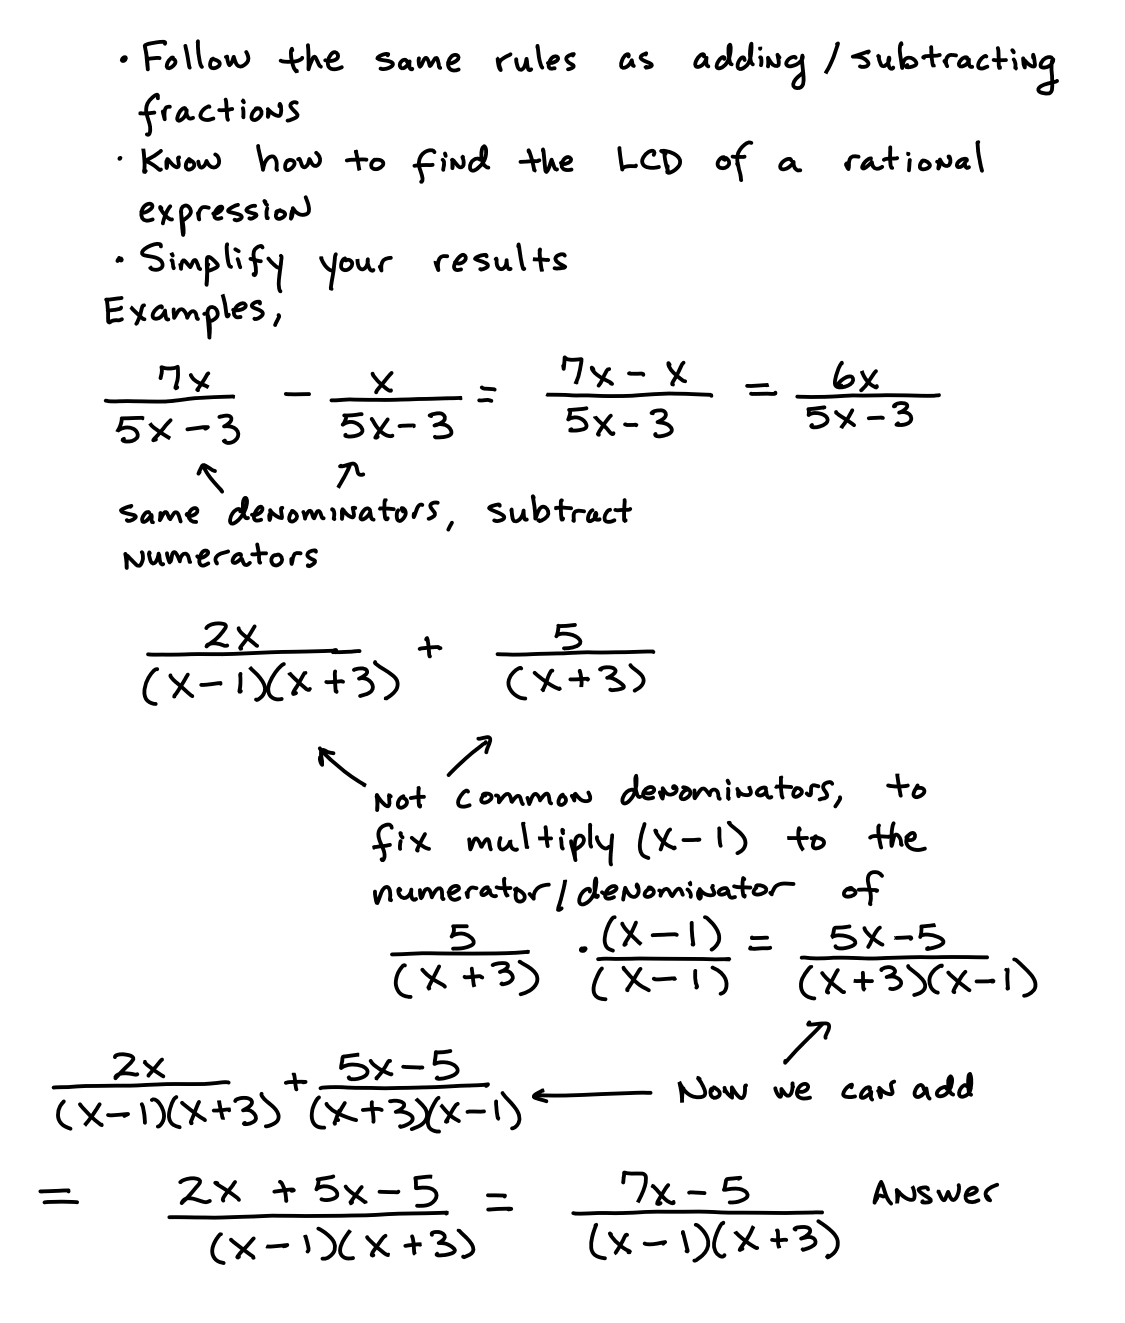 · Follow the same rules as adding/subtracting
fractions
· Know how to find the LCD of a rational
expression
· Simplify your results
Examples,
7x/(5x-3) - x/(5x-3) = (7x-x)/(5x-3) = 6x/(5x-3)
same denominators, subtract
numerators
2x/((x-1)(x+3)) + 5/(x+3)
Not common denominators, to
fix multiply (x-1) to the
numerator/denominator of
5/(x+3) · (x-1)/(x-1) = (5x-5)/((x+3)(x-1))
2x/((x-1)(x+3)) + (5x-5)/((x+3)(x-1)) ← Now we can add
= (2x+5x-5)/((x-1)(x+3)) = (7x-5)/((x-1)(x+3)) Answer